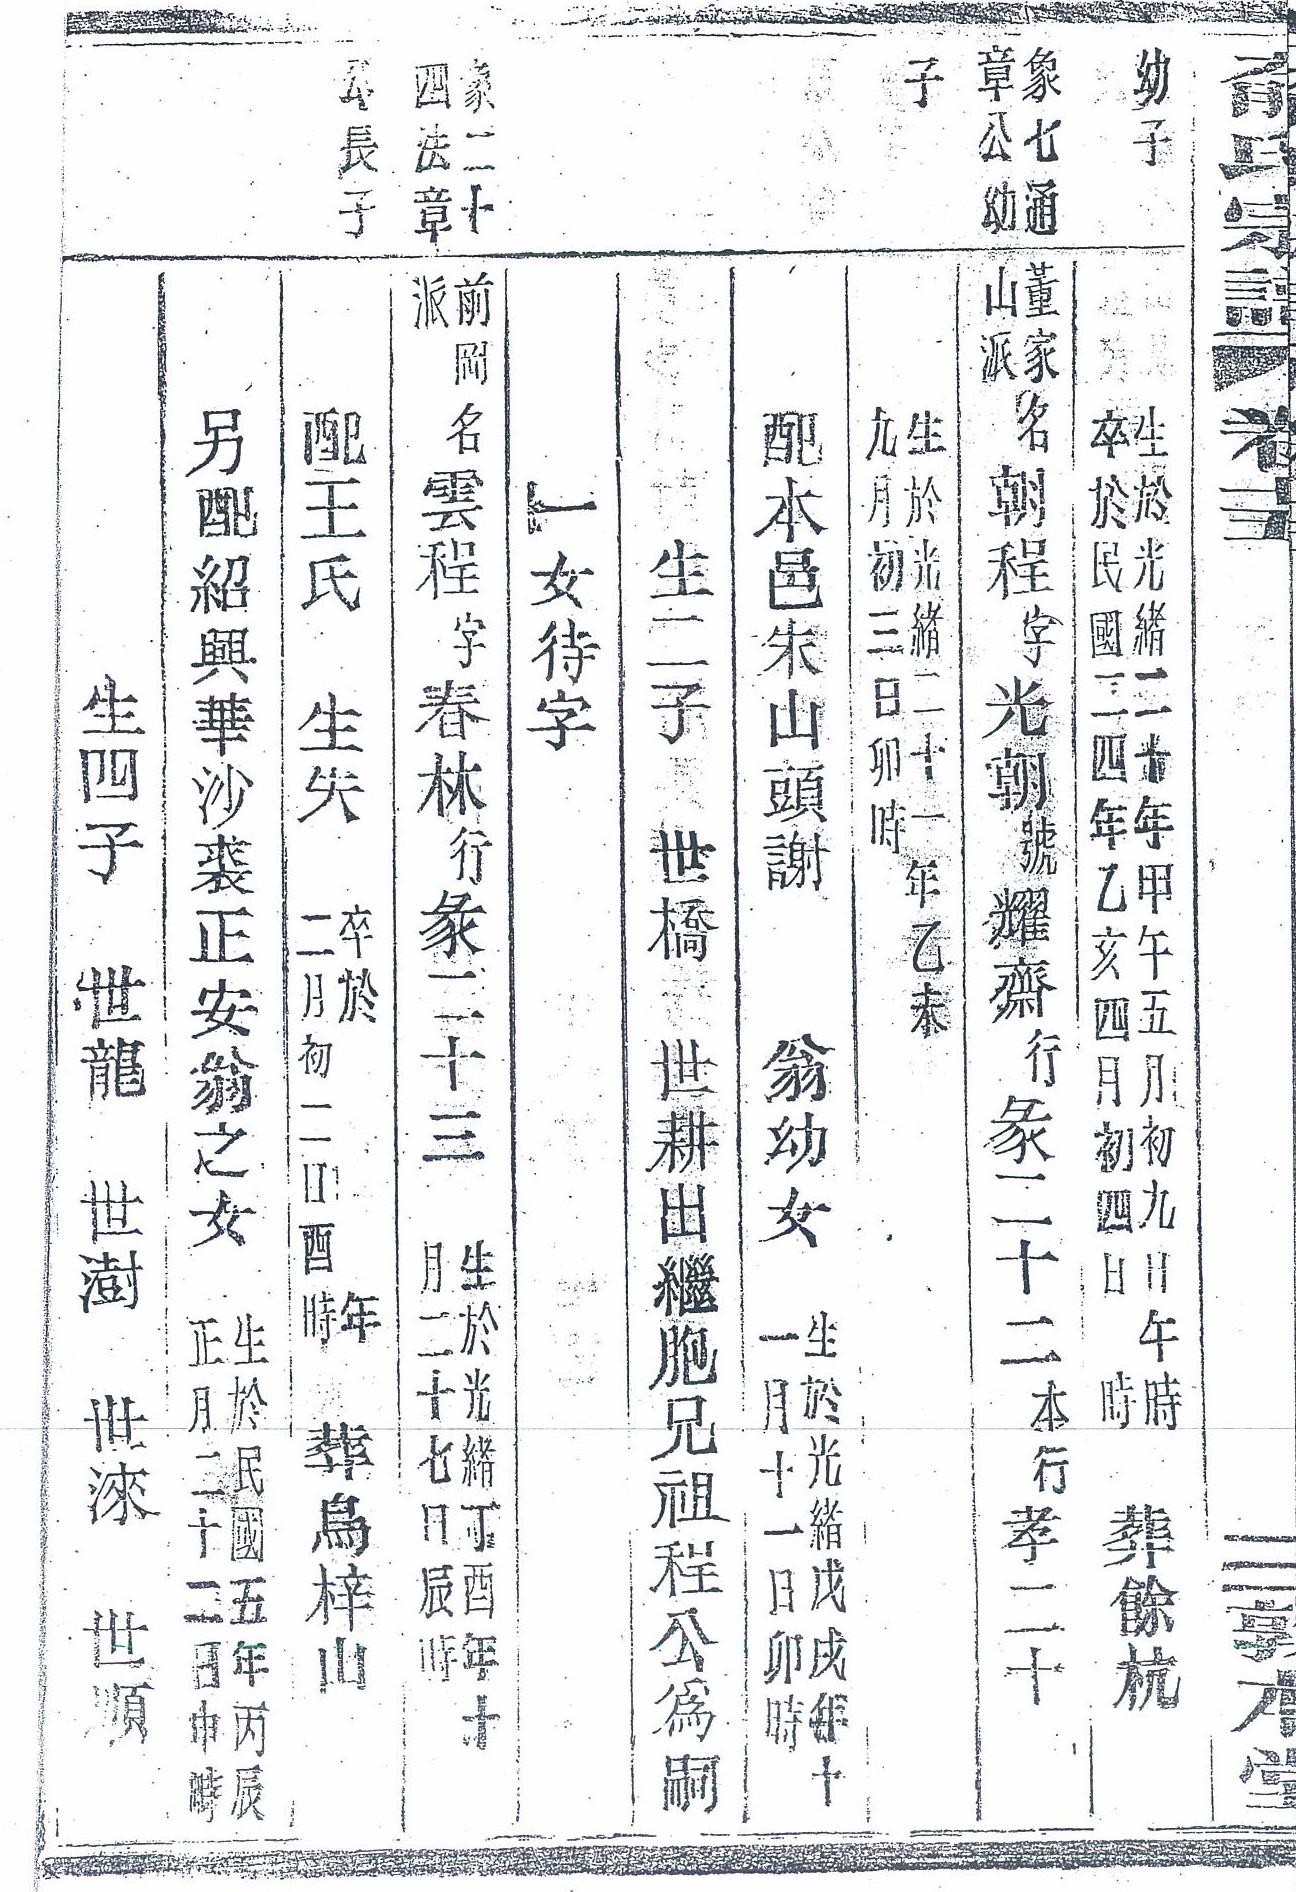 氏宗譜 卷三 敦本堂
幼子
生於光緒二十年甲午五月初九日午時
卒於民國二四年乙亥四月初四日 時
葬餘杭
象七通
章公幼
子
董家
山派
名朝程字光朝號耀齋行彖二十二本行孝二十
生於光緒二十一年乙未
九月初三日卯時
配本邑朱山頭謝 翁幼女
生於光緒戊戌年十
一月十一日卯時
生二子 世橋 世耕出繼胞兄祖程公為嗣
一女待字
象二十
四法章
公長子
前岡
派
名雲程字春林行彖二十三
生於光緒丁酉年十
月二十七日辰時
配王氏 生失
卒於 年
二月初二日酉時
葬鳥梓山
另配紹興華沙裘正安翁之女
生於民國五年丙辰
正月二十二日巾時
生四子 世龍 世澍 世淶 世順